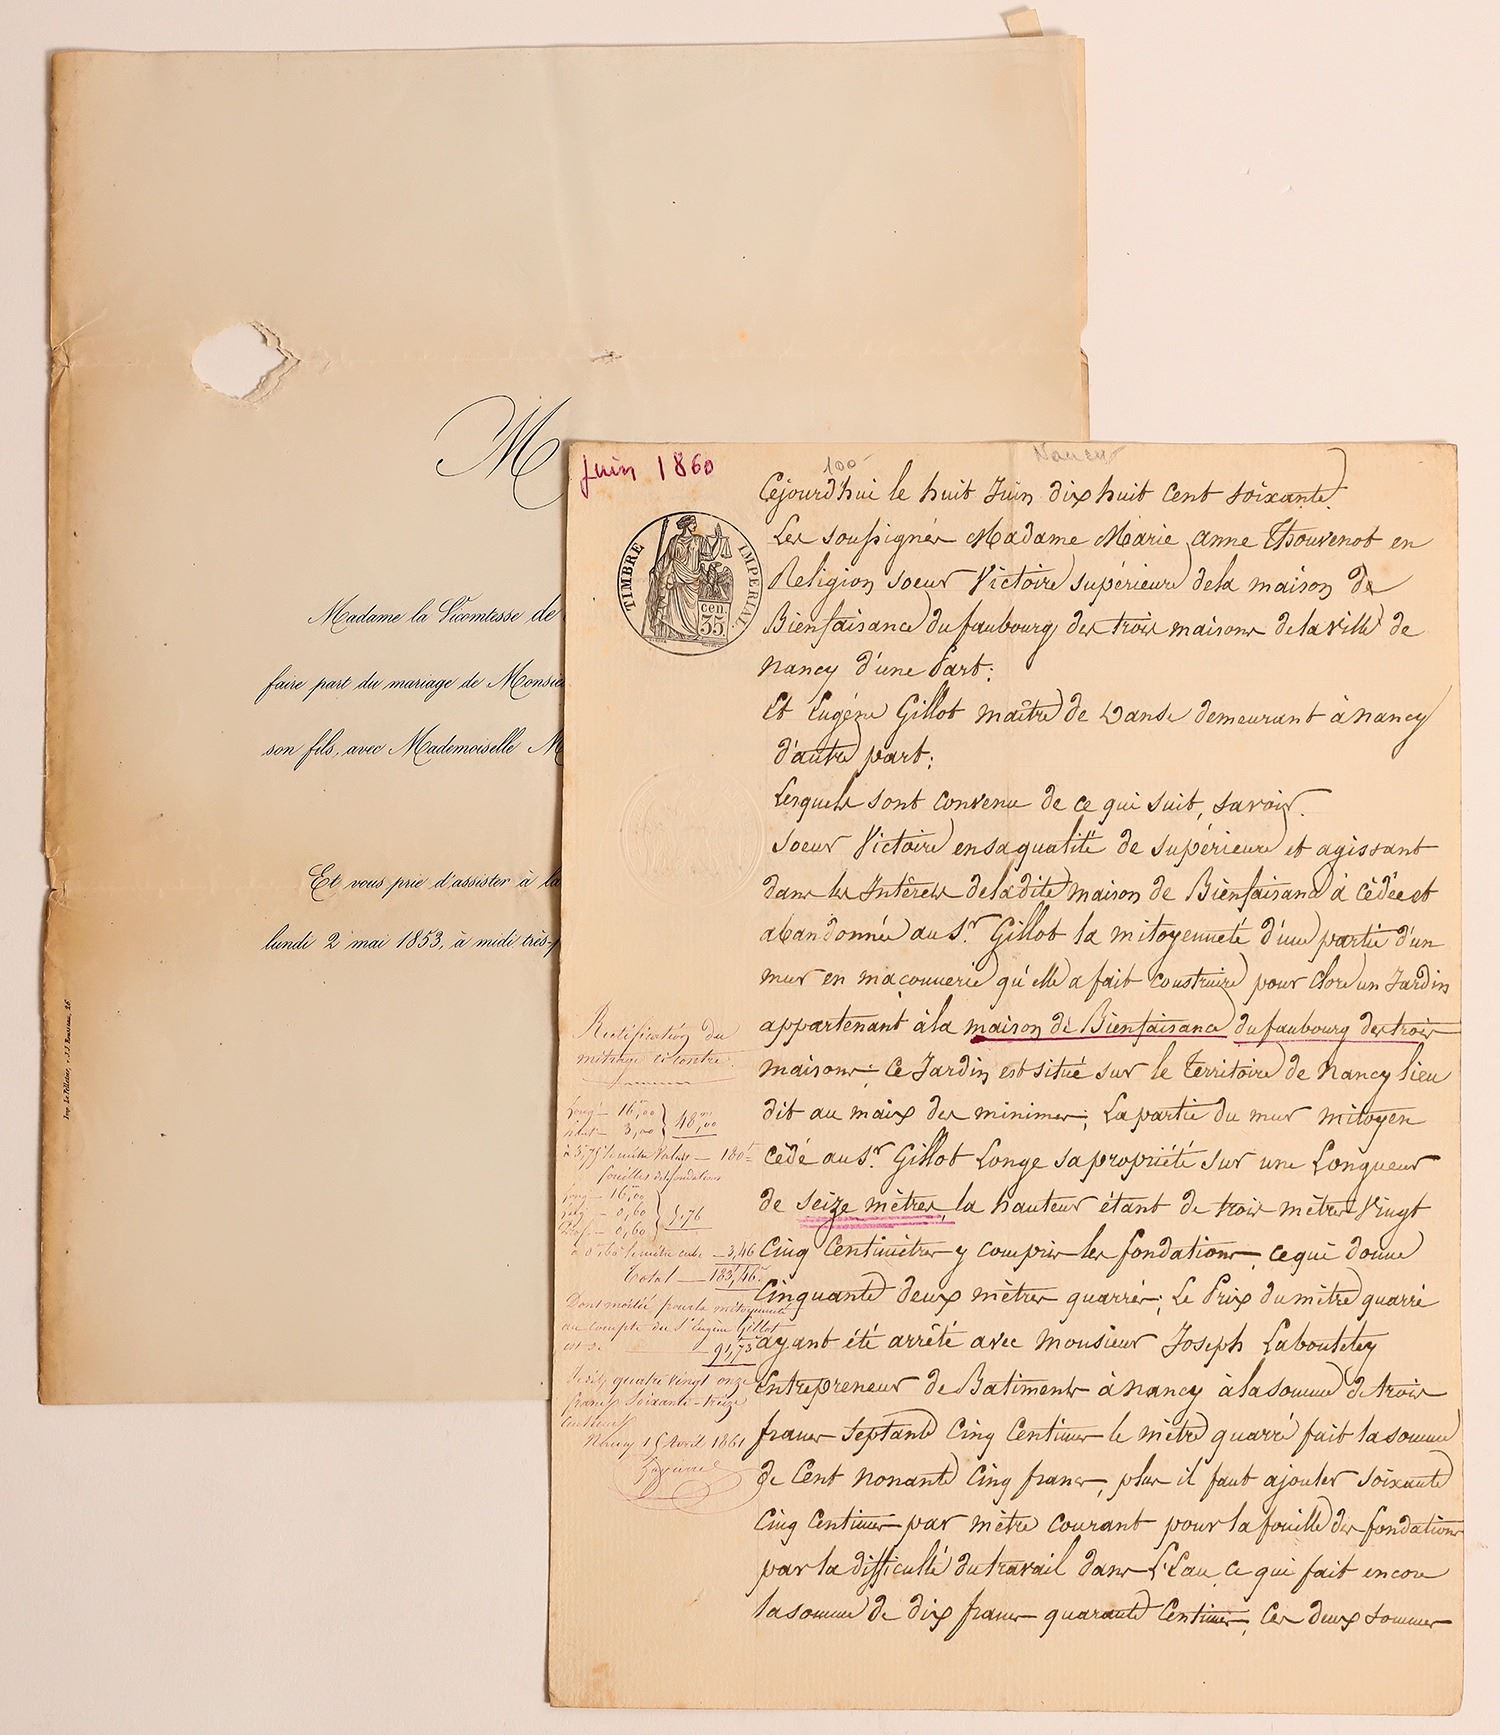 M
Madame la Vicomtesse de
faire part du mariage de Monsie
son fils, avec Mademoiselle M
Et vous prie d'assister à la
lundi 2 mai 1853, à midi très-p
Imp. Le Pelletier, r. J.J. Rousseau, 26
Juin 1860
100
Nancy
TIMBRE IMPERIAL
cen.
35
Cejourd'hui le huit Juin dix huit Cent soixante.
Les soussignés Madame Marie anne Thouvenot en
Religion soeur Victoire supérieure dela maison de
Bienfaisance du faubourg des trois maisons dela ville de
Nancy d'une Part;
Et Eugène Gillot maître de Danse demeurant à Nancy
d'autre part;
Lesquels sont convenu de ce qui suit, savoir.
Soeur Victoire ensaqualité de supérieure et agissant
dans les Intérêts deladite maison de Bienfaisance à cédée et
abandonnée au Sr. Gillot la mitoyenneté d'une partie d'un
mur en maconnerie qu'elle a fait construire pour clore un Jardin
appartenant àla maison de Bienfaisance du faubourg des trois
maisons; Ce Jardin est situé sur le Territoire de Nancy lieu
dit au maix des minimes; La partie du mur mitoyen
cédé au Sr. Gillot Longe sa propriété sur une Longueur
de seize mètres, la hauteur étant de trois mètres Vingt
Cinq Centimètres y compris les fondations, cequi donne
Cinquante deux mètres quarrés; Le Prix du mètre quarré
ayant été arrêté avec Monsieur Joseph Laboutetey
Entrepreneur de Batiments à Nancy àlasomme de trois
francs Septante Cinq Centimes le mètre quarré fait la somme
de Cent Nonante Cinq francs, plus il faut ajouter soixante
Cinq Centimes par mètre courant pour la fouille des fondations
par la difficulté du travail dans L'Eau ce qui fait encore
la somme de dix francs quarante Centimes, Ces deux sommes
Rectification du
métrage cicontre.
Longr 16,00
hautr 3,00
48,00
à 3,75 le mètre Valeur 180
fouilles des fondations
Longr 16,00
0,60
0,60
5,76
à 0,60 le mètre cube 3,46
Total 183,46
Dont moitié pour la mitoyenneté
au compte du Sr Eugène Gillot
est de 91,73
quatre vingt onze
francs Soixante-treize
Centimes
Nancy 15 Avril 1861